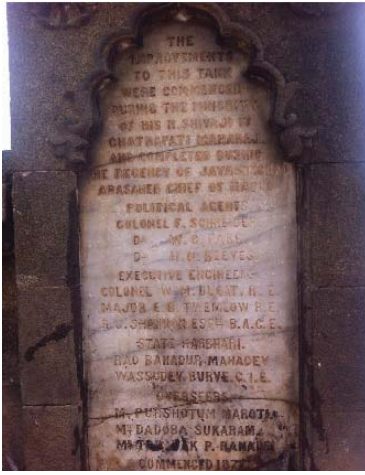 THE
IMPROVEMENTS
TO THIS TANK
WERE COMMENCED
DURING THE MINORITY
OF HIS H. SHIVAJI IV
CHATRAPATI MAHARAJ
AND COMPLETED DURING
THE REGENCY OF
ABASAHEB CHIEF OF KAGAL
POLITICAL AGENTS
COLONEL F. SCHNEIDER
Do W.
Do H. N. REEVES
EXECUTIVE ENGINEERS
COLONEL W. M. DUCAT, R. E.
MAJOR E. D. TWEMLOW R.E.
SHANNON ESQR B.A.C.E.
STATE KARBHARI.
RAO BAHADUR, MAHADEV
WASSUDEV, BURVE. C.I.E.
OVERSEERS.
Mr PURSHOTUM MAROTI.
Mr DADOBA SUKARAM.
Mr P.
COMMENCED